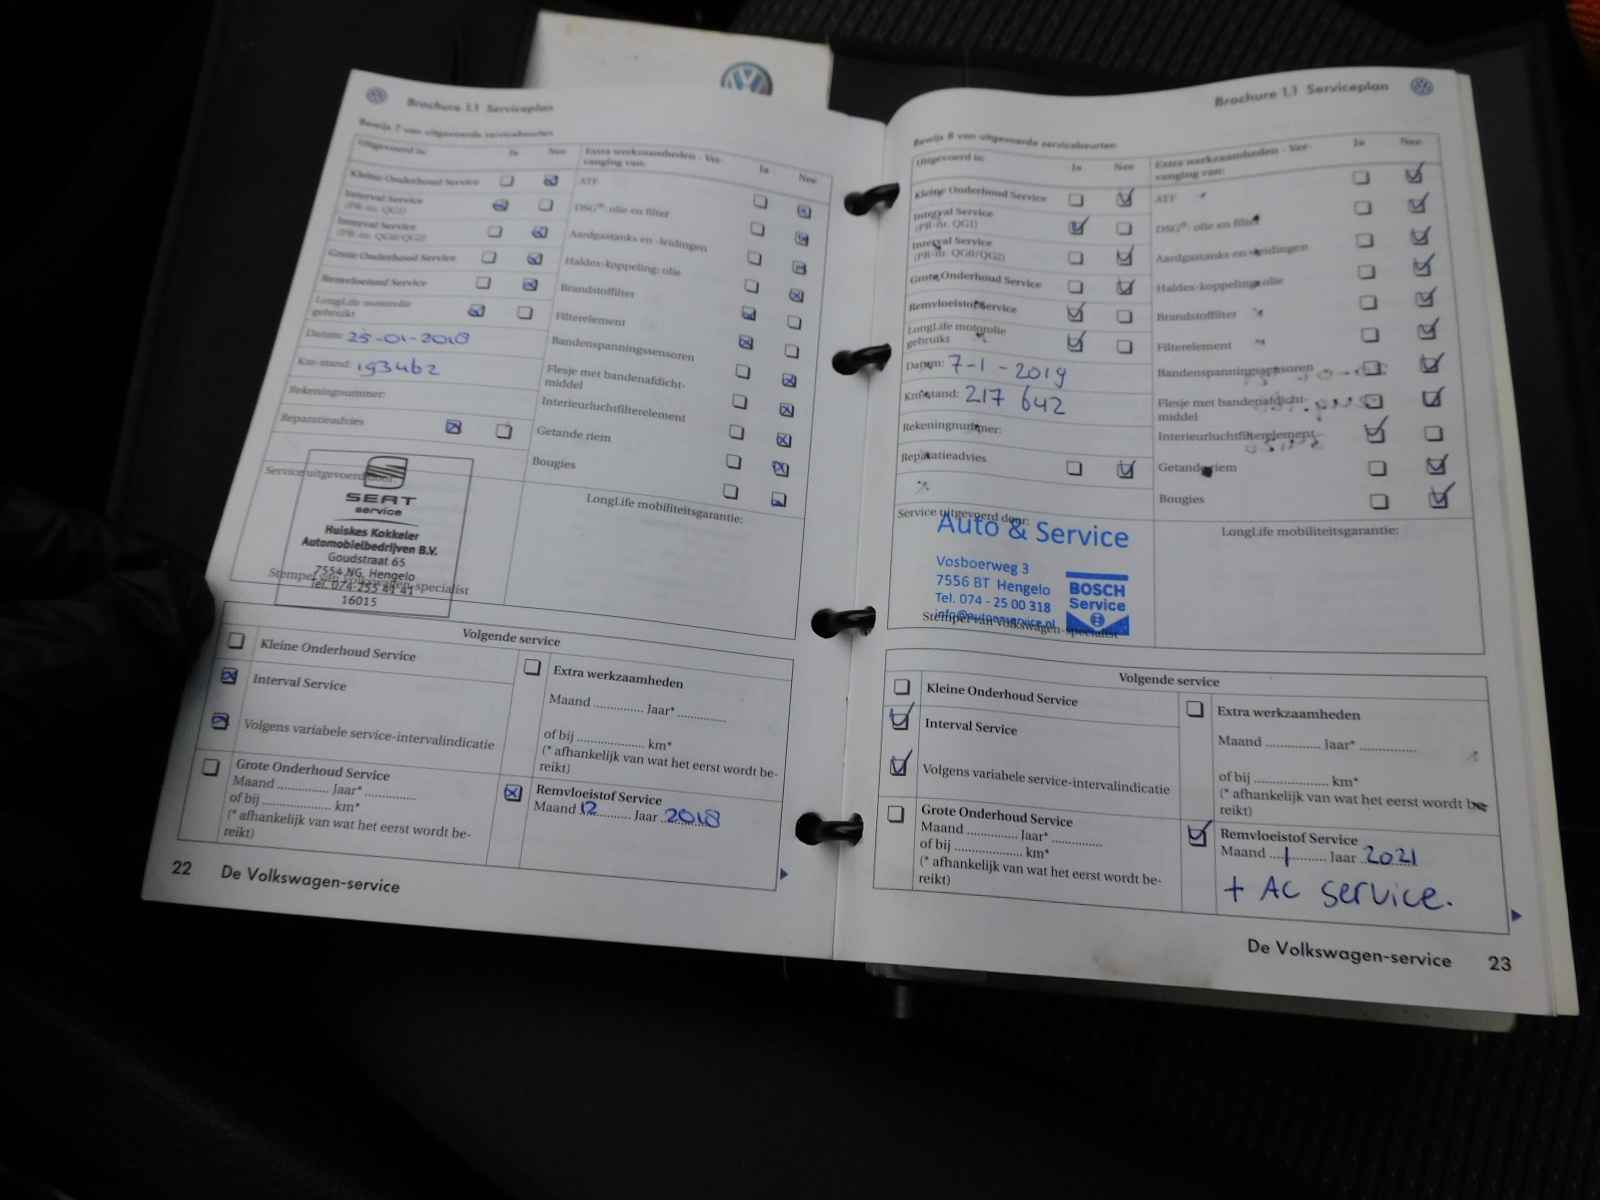 Brochure 1.1 Serviceplan
Bewijs 7 van uitgevoerde servicebeurten
Uitgevoerd is: Ja Nee
Kleine Onderhoud Service
Interval Service
(PR-nr. QG1)
Interval Service
(PR-nr. QG0/QG2)
Grote Onderhoud Service
Remvloeistof Service
LongLife motorolie
gebruikt
Datum: 25-01-2018
Km-stand: 193462
Rekeningnummer:
Reparatieadvies
Extra werkzaamheden - Ver-
vanging van: Ja Nee
ATF
DSG®: olie en filter
Aardgastanks en -leidingen
Haldex-koppeling: olie
Brandstoffilter
Filterelement
Bandenspanningssensoren
Flesje met bandenafdicht-
middel
Interieurluchtfilterelement
Getande riem
Bougies
Service uitgevoerd door:
SEAT
service
Huiskes Kokkeler
Automobielbedrijven B.V.
Goudstraat 65
7554 NG, Hengelo
Tel. 074-255 41 41
16015
Stempel van Volkswagen-specialist
LongLife mobiliteitsgarantie:
Volgende service
Kleine Onderhoud Service
Interval Service
Volgens variabele service-intervalindicatie
Grote Onderhoud Service
Maand .............. Jaar* ..............
of bij .................... km*
(* afhankelijk van wat het eerst wordt be-
reikt)
Extra werkzaamheden
Maand .............. Jaar* ..............
of bij .................... km*
(* afhankelijk van wat het eerst wordt be-
reikt)
Remvloeistof Service
Maand 12 Jaar 2018
22 De Volkswagen-service
Brochure 1.1 Serviceplan
Bewijs 8 van uitgevoerde servicebeurten
Uitgevoerd is: Ja Nee
Kleine Onderhoud Service
Interval Service
(PR-nr. QG1)
Interval Service
(PR-nr. QG0/QG2)
Grote Onderhoud Service
Remvloeistof Service
LongLife motorolie
gebruikt
Datum: 7-1-2019
Km-stand: 217 642
Rekeningnummer:
Reparatieadvies
Extra werkzaamheden - Ver-
vanging van: Ja Nee
ATF
DSG®: olie en filter
Aardgastanks en -leidingen
Haldex-koppeling: olie
Brandstoffilter
Filterelement
Bandenspanningssensoren
Flesje met bandenafdicht-
middel
Interieurluchtfilterelement
Getande riem
Bougies
Service uitgevoerd door:
Auto & Service
Vosboerweg 3
7556 BT Hengelo
Tel. 074 - 25 00 318
BOSCH
Service
Stempel van Volkswagen-specialist
LongLife mobiliteitsgarantie:
Volgende service
Kleine Onderhoud Service
Interval Service
Volgens variabele service-intervalindicatie
Grote Onderhoud Service
Maand .............. Jaar* ..............
of bij .................... km*
(* afhankelijk van wat het eerst wordt be-
reikt)
Extra werkzaamheden
Maand .............. Jaar* ..............
of bij .................... km*
(* afhankelijk van wat het eerst wordt be-
reikt)
Remvloeistof Service
Maand 1 Jaar 2021
+ AC service.
De Volkswagen-service 23